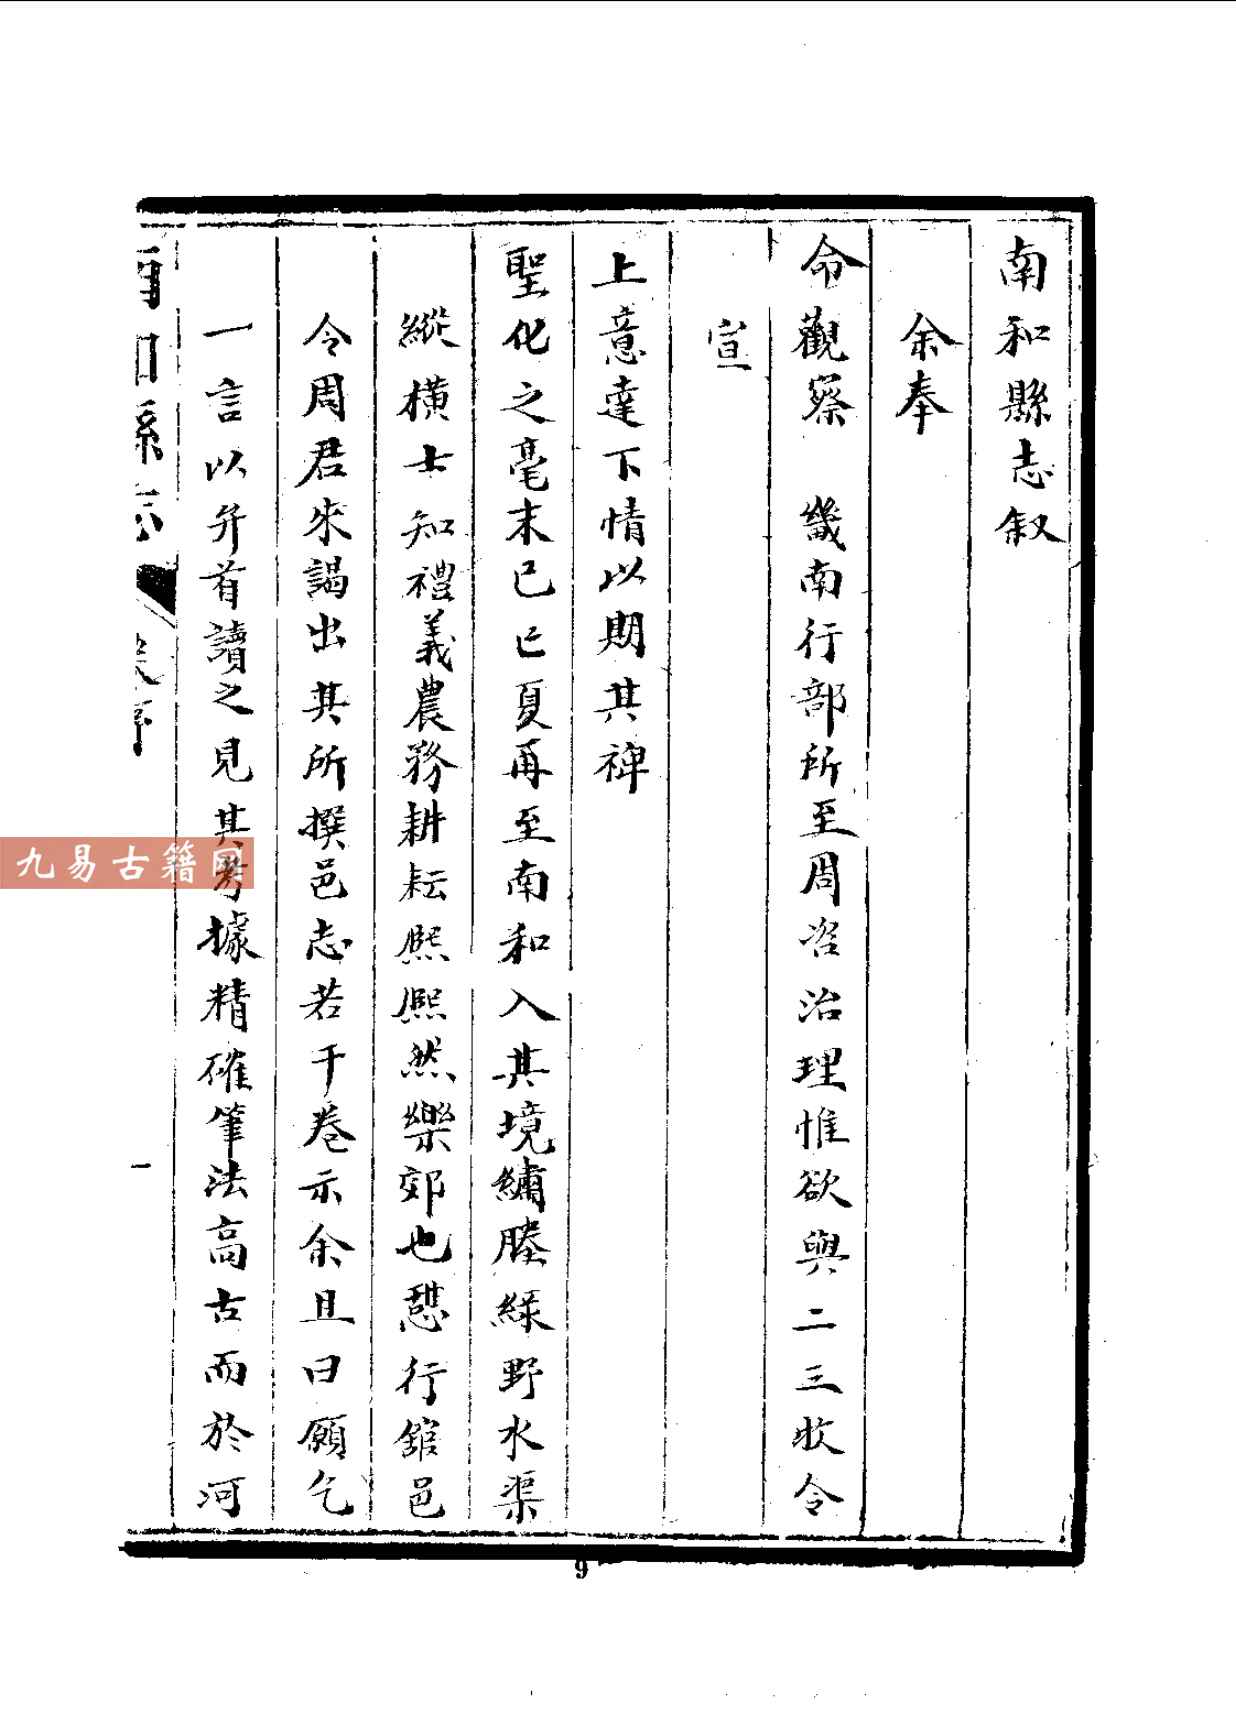 南和縣志叙
余奉
命觀察 畿南行部所至周咨治理惟欲與二三牧令
宣
上意達下情以期其裨
聖化之毫末已巳夏再至南和入其境繡塍綠野水渠
縱橫士知禮義農務耕耘熙熙然樂郊也憇行舘邑
令周君來謁出其所撰邑志若干卷示余且曰願乞
一言以弁首讀之見其考據精確筆法高古而於河
南和縣志
序
一
九易古籍网
9